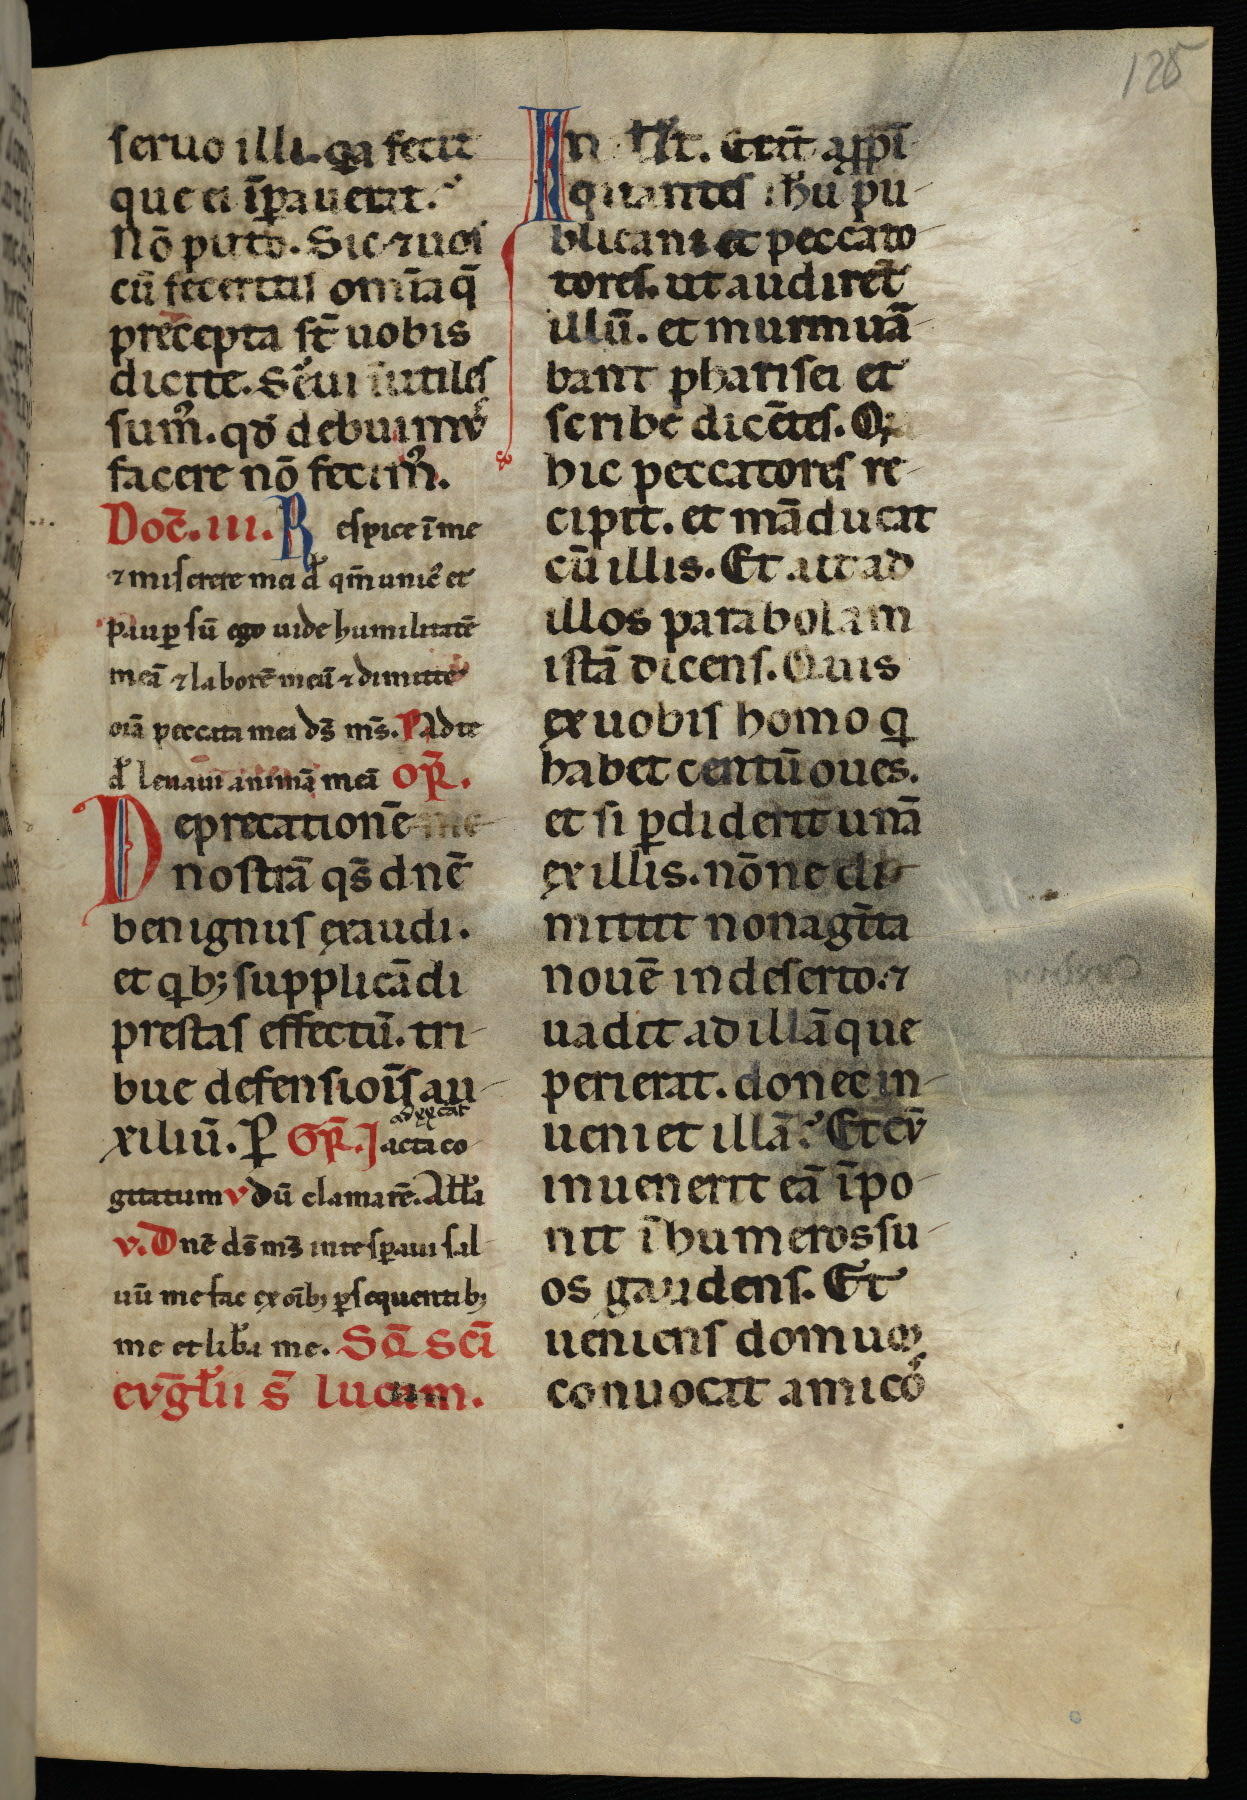 125
seruo illi. q̄a fecit
que ei īpauerat.
Nō puto. Sic ⁊ uos
cū feceritis omīa q̄
precepta st̄ uobis
dicite. Sẽui īutiles
sum᷒. qđ debuim᷒
facere nō fecim᷒.
Doc̄. III. Respice ī me
⁊ miserere mei đ qm̄ unic᷒ et
paup sū ego uide humilitatē
meā ⁊ laborē meū ⁊ dimitte
oīa peccata mea ds̄ ms̄. P Ad te
đ leuaui animā meā Op̄.
Deprecationē
nostrā qs̄ dnē
benignus ęxaudi.
et qb; supplicādi
prestas effectū. tri-
bue defensiōis au-
ad xx cāt
xiliū. P Gr̄. Iacta co-
gitatum v dū clamarē. All̄a
v. Dnē ds̄ ms̄ in te spaui sal-
uū me fac ęx oīb; psequentib;
me et liba me. Sq̄ sc̄i
evḡlii s̄ lucam.
In ill̄ t. Erāt app̄i
quantes ihū pu-
blicani et peccato
tores. ut audirēt
illū. et murmuā-
bant pharisei et
scribe dicētes. Q
hic peccatores re-
cipit. et māducat
cū illis. Et ait ad
illos parabolam
istā dicens. Quis
ęx uobis homo q
habet centū oues.
et si pdiderit unā
ęx illis. nōne di-
mittit nonagīta
nouē in deserto. ⁊
uadit ad illā que
perierat. donec in-
ueniet illā. Et cū
inuenerit eā īpo-
nit ī humeros su-
os gaudens. Et
ueniens domuȝ
conuocat amico᷒